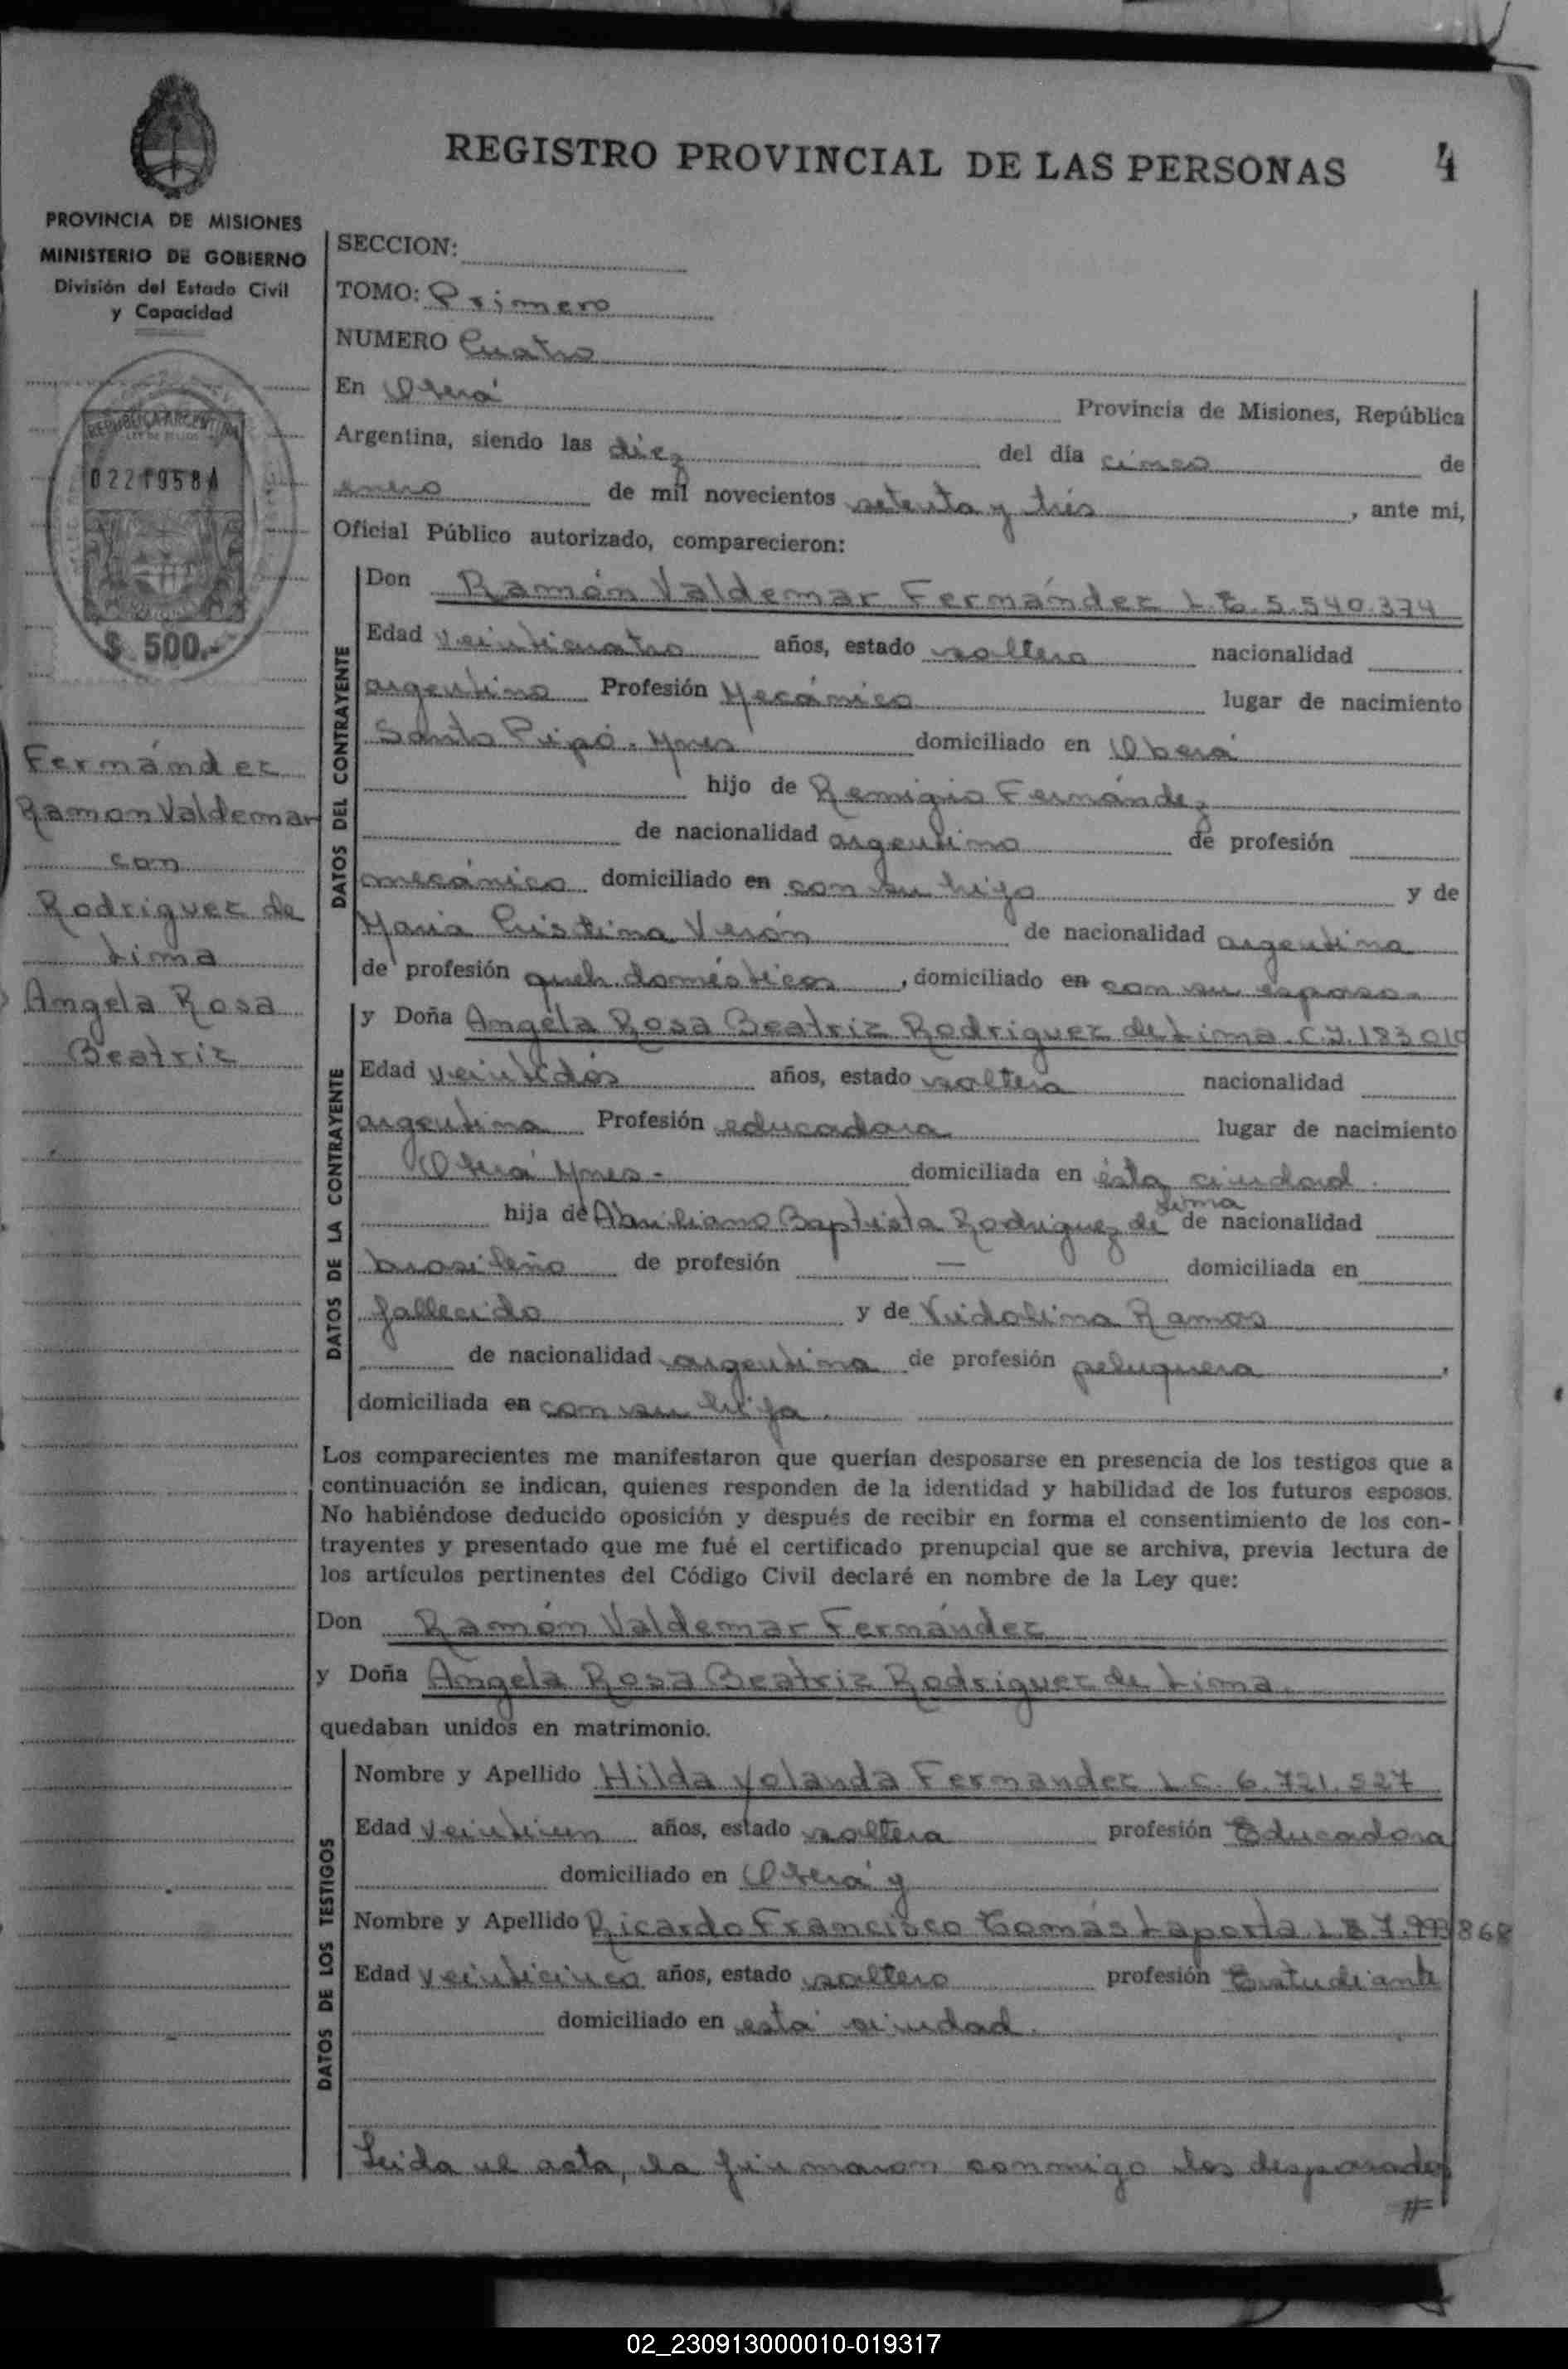 REGISTRO PROVINCIAL DE LAS PERSONAS 4
PROVINCIA DE MISIONES
MINISTERIO DE GOBIERNO
División del Estado Civil
y Capacidad
REPUBLICA ARGENTINA
02219584
$ 500.-
Fernández
Ramon Valdemar
con
Rodriguez de
Lima
Angela Rosa
Beatriz
SECCION:
TOMO: Primero
NUMERO Cuatro
En Oberá Provincia de Misiones, República
Argentina, siendo las diez del día cinco de
enero de mil novecientos setenta y tres, ante mi,
Oficial Público autorizado, comparecieron:
DATOS DEL CONTRAYENTE
Don Ramón Valdemar Fernández L.E. 5.540.374
Edad veinticuatro años, estado soltero nacionalidad
argentino Profesión Mecánico lugar de nacimiento
Santo Pipó. Mnes domiciliado en Oberá
hijo de Remigio Fernández
de nacionalidad argentino de profesión
mecánico domiciliado en con su hijo y de
Maria Cristina Verón de nacionalidad argentina
de profesión queh. domésticos, domiciliado en con su esposo.
DATOS DE LA CONTRAYENTE
y Doña Angela Rosa Beatriz Rodriguez de Lima. C.I. 183.010
Edad veintidós años, estado soltera nacionalidad
argentina Profesión educadora lugar de nacimiento
Oberá Mnes. domiciliada en ésta ciudad.
hija de Baptista Rodriguez de Lima de nacionalidad
brasileño de profesión — domiciliada en
fallecido y de Ramos
de nacionalidad argentina de profesión peluquera,
domiciliada en con su hija.
Los comparecientes me manifestaron que querían desposarse en presencia de los testigos que a
continuación se indican, quienes responden de la identidad y habilidad de los futuros esposos.
No habiéndose deducido oposición y después de recibir en forma el consentimiento de los con-
trayentes y presentado que me fué el certificado prenupcial que se archiva, previa lectura de
los artículos pertinentes del Código Civil declaré en nombre de la Ley que:
Don Ramón Valdemar Fernández
y Doña Angela Rosa Beatriz Rodriguez de Lima.
quedaban unidos en matrimonio.
DATOS DE LOS TESTIGOS
Nombre y Apellido Hilda Yolanda Fernandez L.C. 6.721.527
Edad veintiun años, estado soltera profesión Educadora
domiciliado en Oberá y
Nombre y Apellido Ricardo Francisco Tomás Laporta L.E 7.993868
Edad veinticinco años, estado soltero profesión Estudiante
domiciliado en esta ciudad.
Leida el acta, la firmaron conmigo los desposados
#
02_230913000010-019317